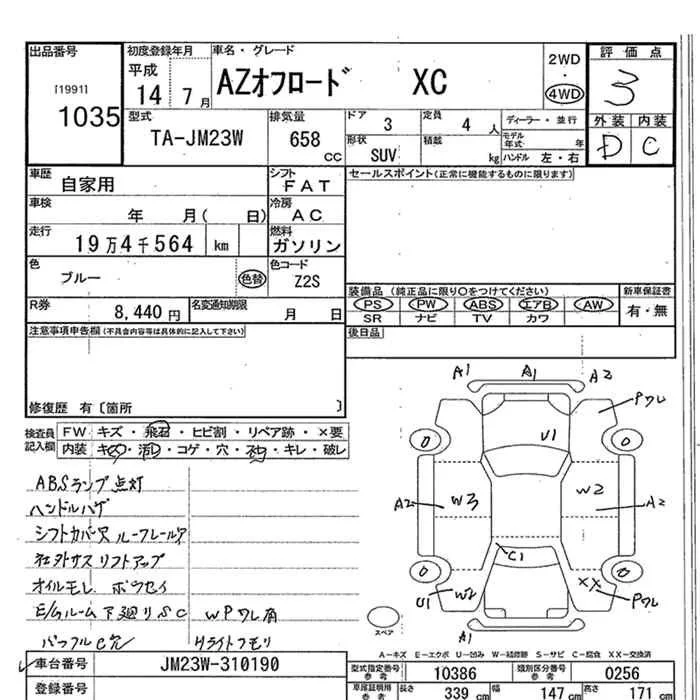 出品番号
[1991]
1035
初度登録年月
平成
14 7月
車名・グレード
AZオフロード XC
2WD
・
4WD
評価点
3
型式
TA-JM23W
排気量
658
CC
ドア
3
定員
4
人
形状
SUV
積載
kg
ディーラー・並行
モデル年式 年
ハンドル 左・右
外装 内装
D C
車歴
自家用
シフト
FAT
セールスポイント(正常に機能するものに限ります)
車検
年 月( 日)
冷房
AC
走行
19万4千564 km
燃料
ガソリン
色
ブルー
色替
色コード
Z2S
R券
8,440 円
名変通知期限
月 日
装備品 (純正品に限り○をつけてください)
PS PW ABS エアB AW
SR ナビ TV カワ
新車保証書
有・無
後日品
注意事項申告欄(不具合内容等は具体的に記入して下さい)
修復歴 有〔箇所 〕
検査員記入欄
FW キズ・飛石・ヒビ割・リペア跡・×要
内装 キズ・汚レ・コゲ・穴・ネジ・キレ・破レ
ABSランプ点灯
ハンドルハゲ
シフトカバー穴 ルーフレールア
社外サスリフトアップ
オイルモレ
E/Gルーム下廻りSC WPワレ有
Hライトクモリ
車台番号
JM23W-310190
登録番号
A1 A1 A2
Pワレ
U1
A2 W3 W2 A2
C1
U1 W2 XX Pワレ
A1
スペア
A-キズ E-エクボ U-凹み W-補修跡 S-サビ C-腐食 XX-交換済
型式指定番号
参考
10386
類別区分番号
参考
0256
車庫証明用
参考
長さ
339 cm
幅
147 cm
高さ
171 cm